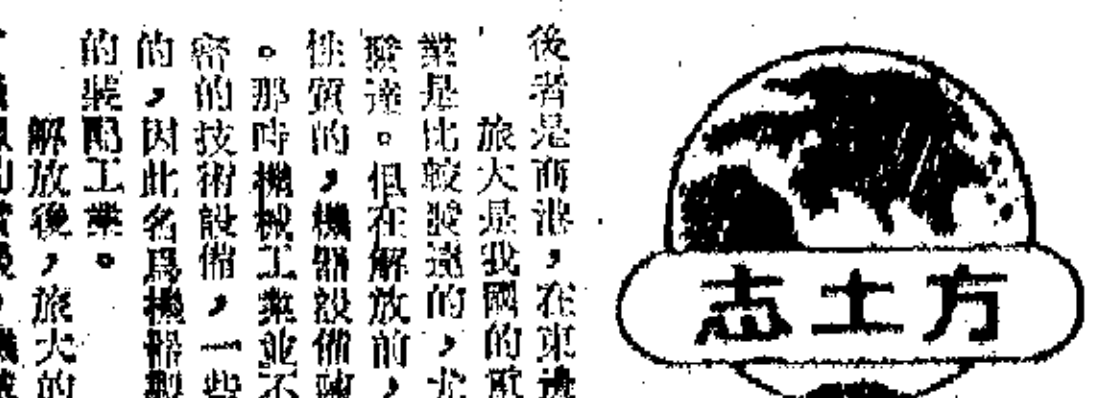 方土志
後者是商港，在東邊
旅大是我國的重
業是比較發達的，尤
發達。但在解放前，
性質的，機器設備陳
。那時機械工業並不
密的技術設備，一些
的，因此名爲機器製
的裝配工業。
解放後，旅大的